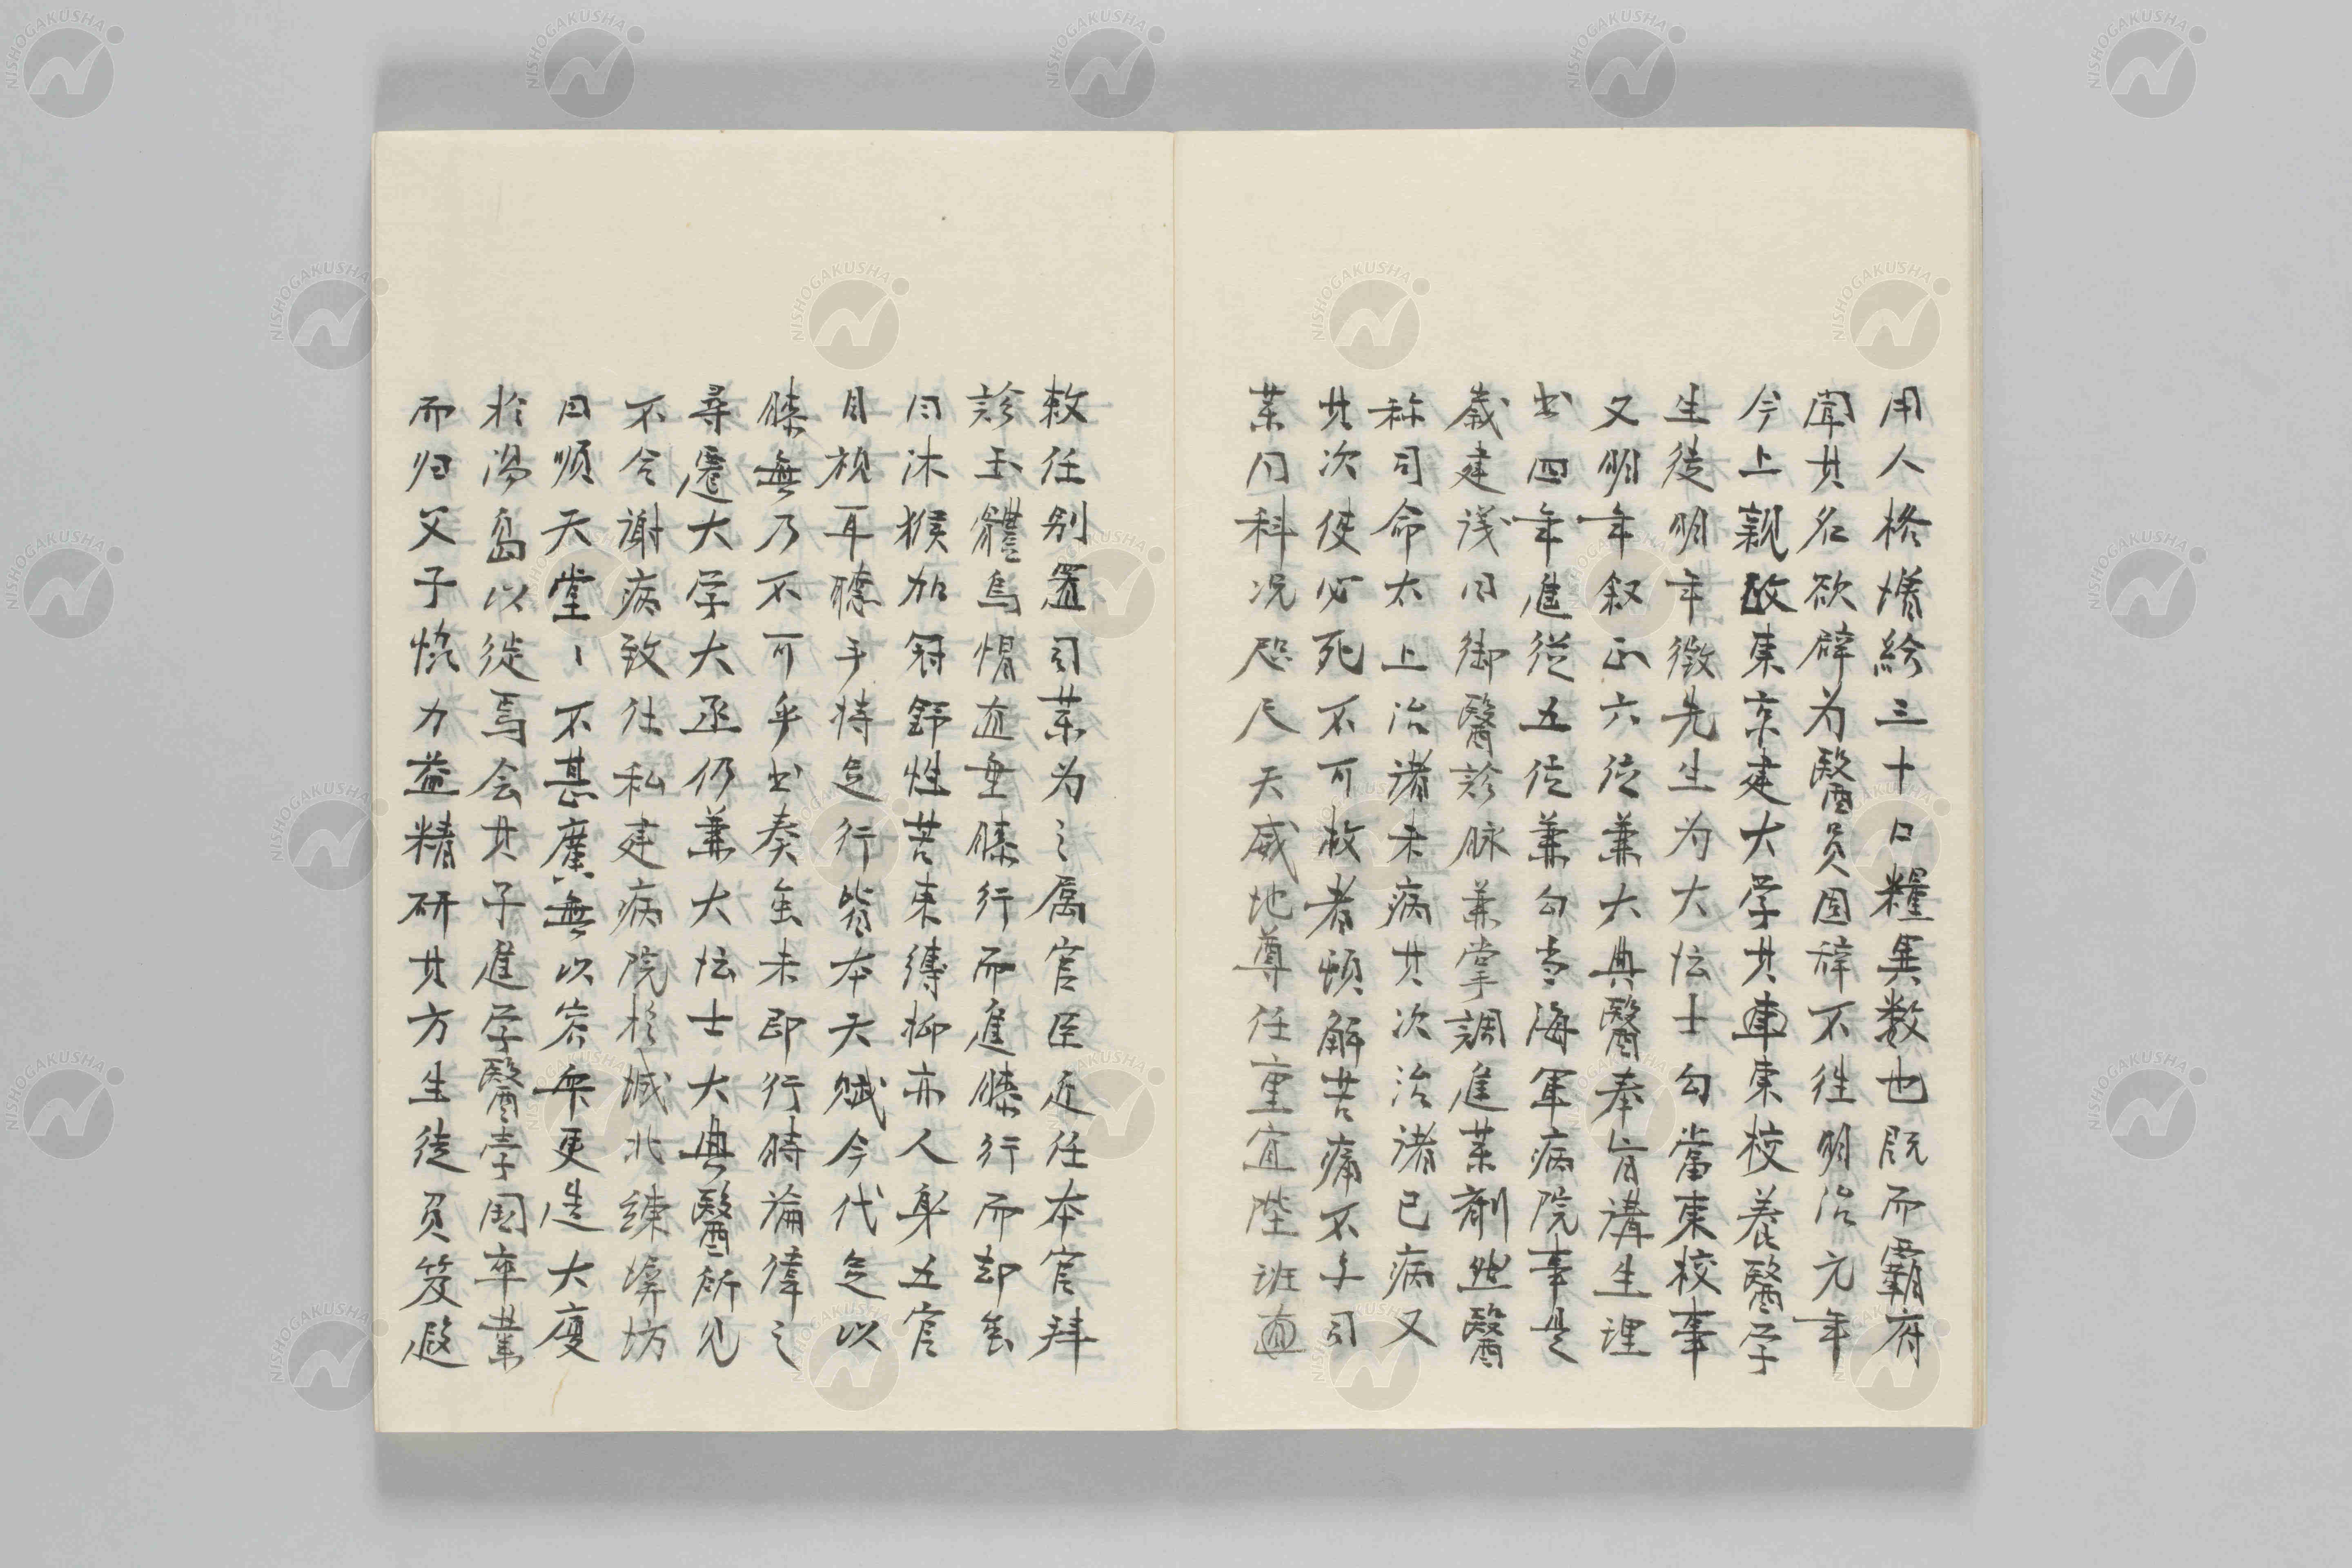 用人格増給三十口糧異数也既而覇府
聞其名欲辟为醫員固辞不往明治元年
今上親政東京建大学其連東校養醫学
生徒明年徴先生为大博士勾當東校事
又明年叙正六位兼大典醫奉旨講生理
出四年進從五位兼勾當海軍病院事是
歳建議曰御醫診脉兼掌調進薬剤然醫
称司命太上治諸未病其次治諸已病又
其次使必死不可救者頓解苦痛不予司
薬同科况咫尺天威地尊任重宜陞班
敕任别置司薬为之属官臣近任本官拜
診玉體烏帽直垂膝行而進膝行而却
曰沐猴加冠野性苦束縛抑亦人身五官
目視耳聽手持足行皆本天賦今代足以
膝無乃不可乎書奏雖未即行時論偉之
尋遷大学大丞仍兼大博士大典醫所見
不合謝病致仕私建病院於城北練塀坊
曰順天堂〻不甚廣無以容衆更造大廈
於湯島以徙焉会其子進学醫孛国卒業
而归父子怺力益精研其方生徒負笈遐